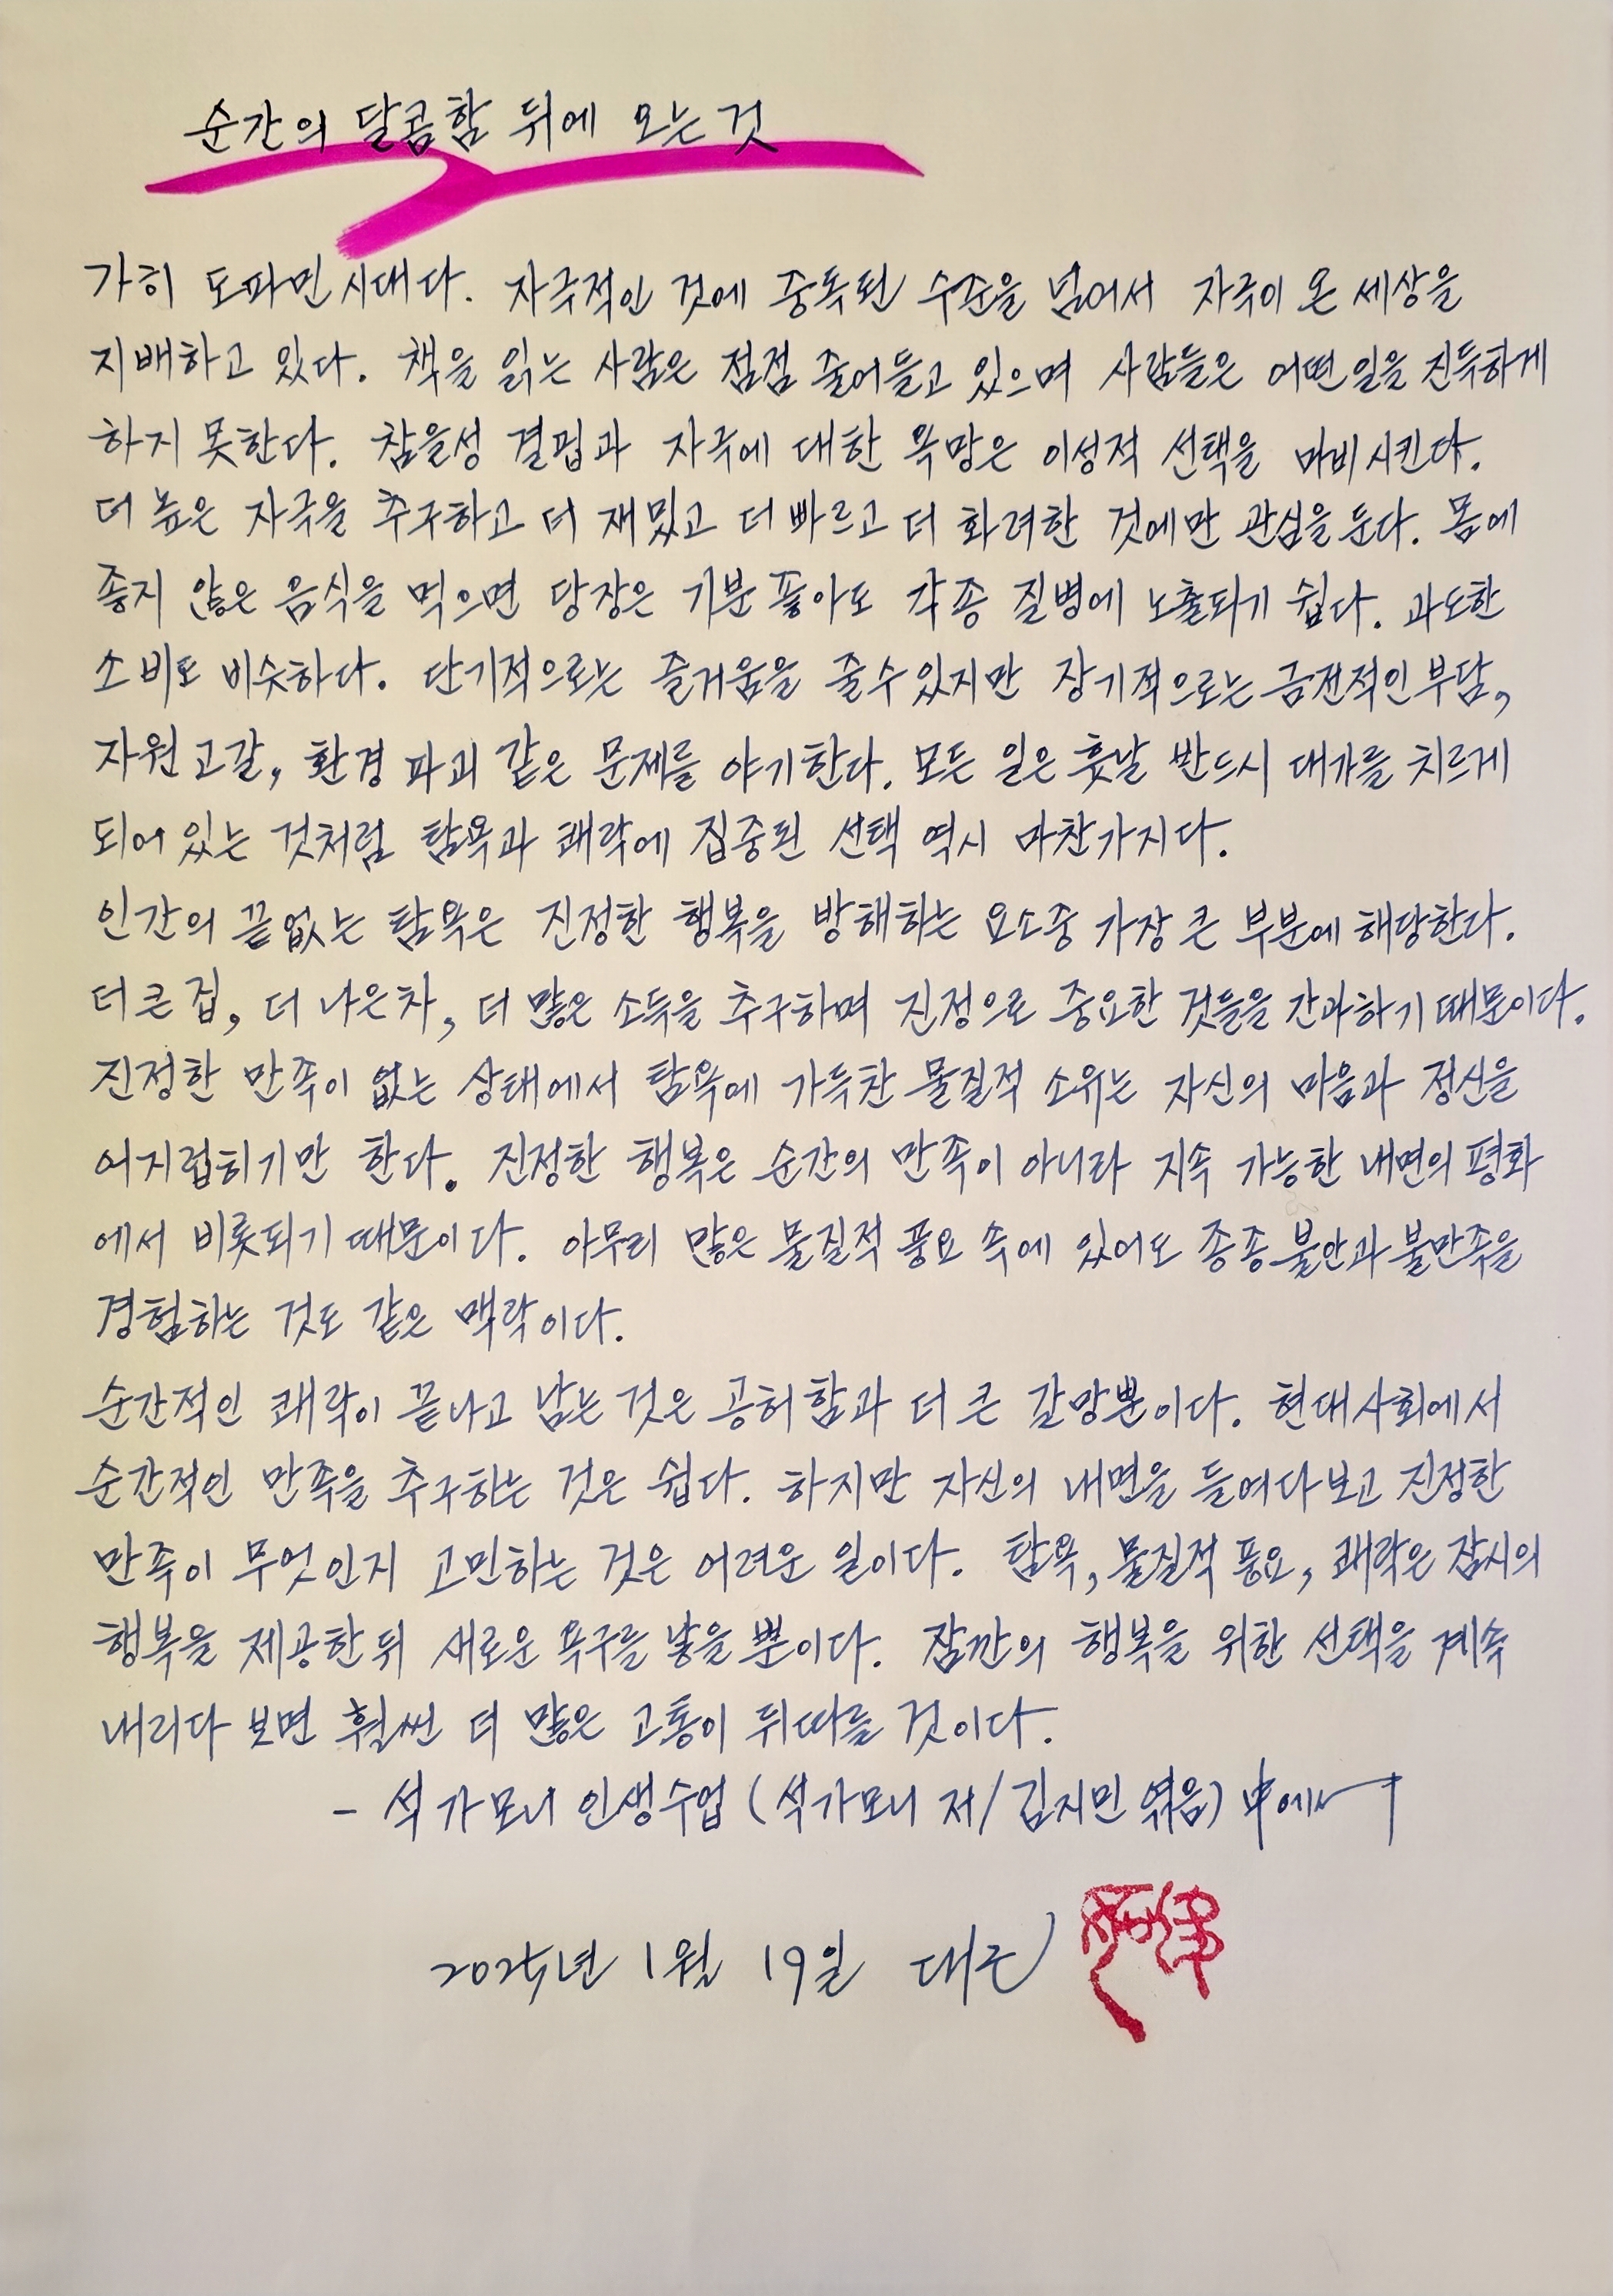 순간의 달콤함 뒤에 오는 것
가히 도파민 시대다. 자극적인 것에 중독된 수준을 넘어서 자극이 온 세상을
지배하고 있다. 책을 읽는 사람은 점점 줄어들고 있으며 사람들은 어떤 일을 진득하게
하지 못한다. 참을성 결핍과 자극에 대한 욕망은 이성적 선택을 마비시킨다.
더 높은 자극을 추구하고 더 재밌고 더 빠르고 더 화려한 것에만 관심을 둔다. 몸에
좋지 않은 음식을 먹으면 당장은 기분 좋아도 각종 질병에 노출되기 쉽다. 과도한
소비도 비슷하다. 단기적으로는 즐거움을 줄 수 있지만 장기적으로는 금전적인 부담,
자원 고갈, 환경 파괴 같은 문제를 야기한다. 모든 일은 훗날 반드시 대가를 치르게
되어 있는 것처럼 탐욕과 쾌락에 집중된 선택 역시 마찬가지다.
인간의 끝없는 탐욕은 진정한 행복을 방해하는 요소중 가장 큰 부분에 해당한다.
더 큰 집, 더 나은 차, 더 많은 소득을 추구하며 진정으로 중요한 것들을 간과하기 때문이다.
진정한 만족이 없는 상태에서 탐욕에 가득찬 물질적 소유는 자신의 마음과 정신을
어지럽히기만 한다. 진정한 행복은 순간의 만족이 아니라 지속 가능한 내면의 평화
에서 비롯되기 때문이다. 아무리 많은 물질적 풍요 속에 있어도 종종 불안과 불만족을
경험하는 것도 같은 맥락이다.
순간적인 쾌락이 끝나고 남는 것은 공허함과 더 큰 갈망뿐이다. 현대사회에서
순간적인 만족을 추구하는 것은 쉽다. 하지만 자신의 내면을 들여다보고 진정한
만족이 무엇인지 고민하는 것은 어려운 일이다. 탐욕, 물질적 풍요, 쾌락은 잠시의
행복을 제공한 뒤 새로운 욕구를 낳을 뿐이다. 잠깐의 행복을 위한 선택을 계속
내리다 보면 훨씬 더 많은 고통이 뒤따를 것이다.
- 석가모니 인생수업 (석가모니 저/김지민 엮음) 中에서
2025년 1월 19일 대근